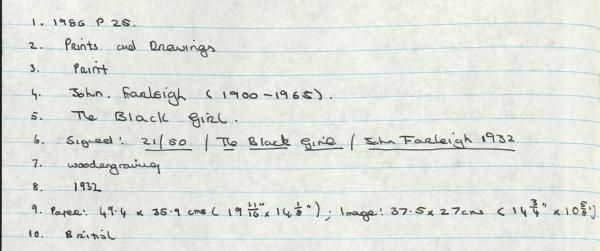 1. 1986 P 25.
2. Prints and Drawings
3. Print
4. John. Farleigh (1900-1965).
5. The Black Girl.
6. Signed: 21/80 / The Black Girl / John Farleigh 1932
7. woodengraving
8. 1932
9. Paper: 49.4 x 35.9 cms (19 11/16" x 14 1/8"); Image: 37.5 x 27 cms (14 3/4" x 10 5/8")
10. British